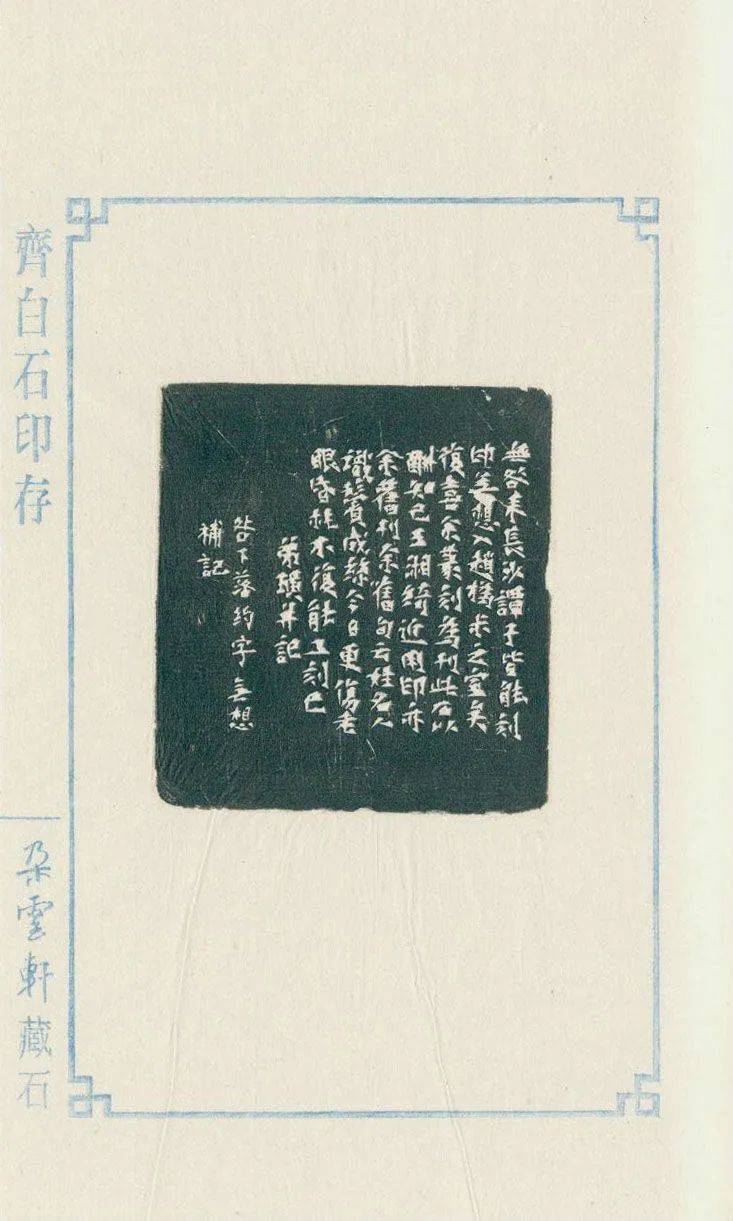 齊白石印存
朵雲軒藏石
無咎來長沙譚子皆能刻
印想入趙撝之室矣
復喜余篆刻為刊此石以
酬知己王湘綺近用印亦
余舊刊余舊句云姓名人
識鬢成絲今日更傷老
眼昏耗不復能工刻已
弟璜并記
咎下落約字無想
補記